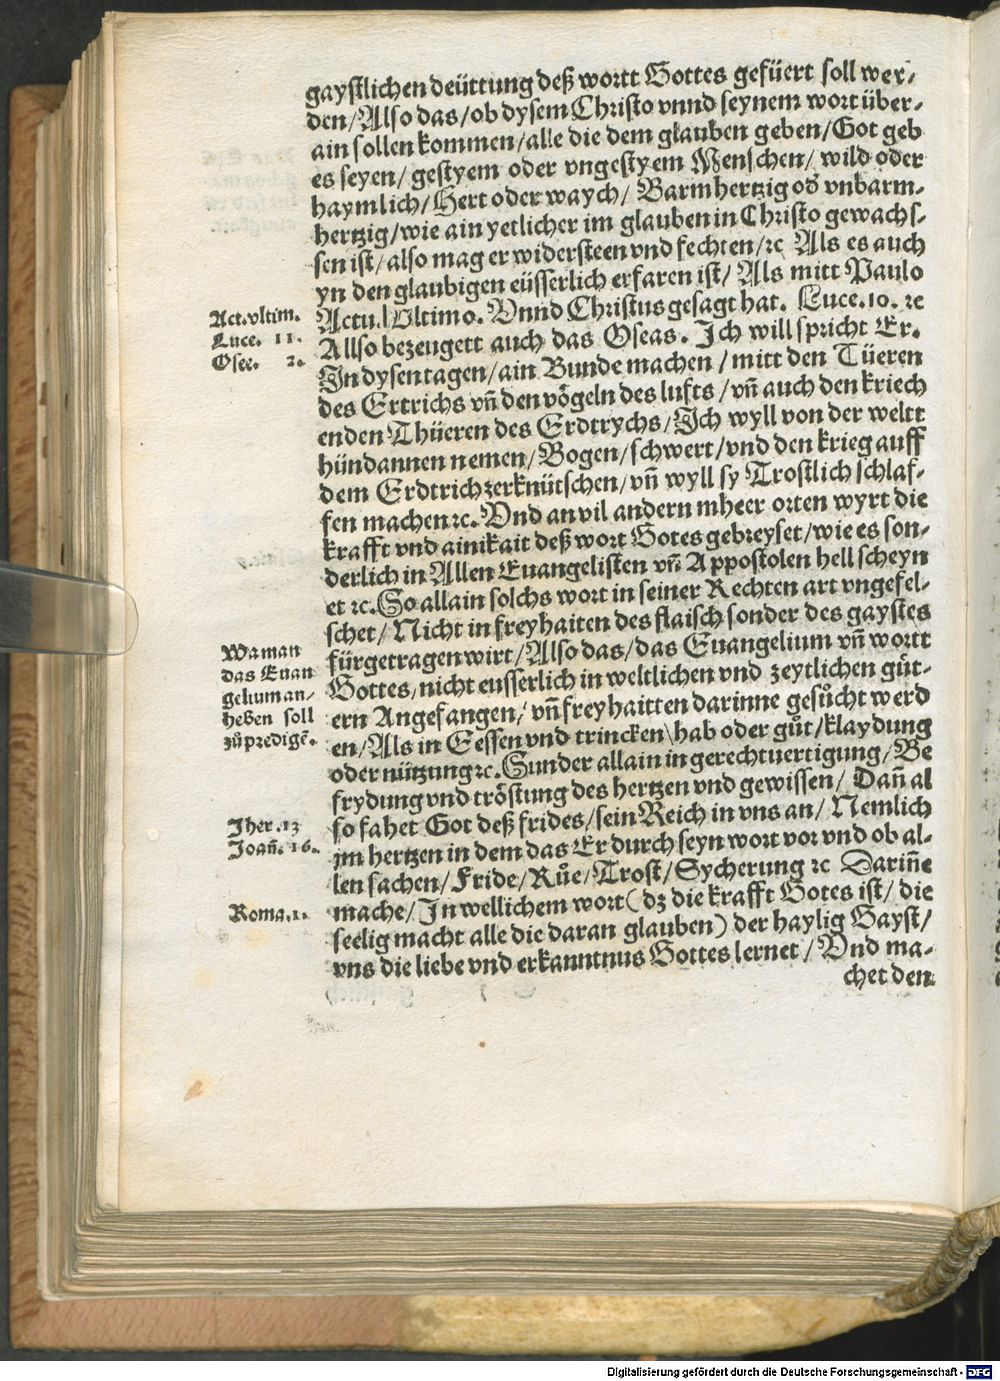 gaystlichen deüttung deß wortt Gottes gefüert soll wer-
den/Also das/ob dysem Christo vnnd seynem wort über-
ain sollen kommen/alle die dem glauben geben/Got geb
es seyen/ gestyem oder vngestyem Menschen/ wild oder
haymlich/Hert oder waych/ Barmhertzig od̕ vnbarm-
hertzig/wie ain yetlicher im glauben in Christo gewachs-
sen ist/also mag er widersteen vnd fechten/ꝛc Als es auch
yn den glaubigen eüsserlich erfaren ist/ Als mitt Paulo
Act.vltim.
Actu. Vltimo. Vnnd Christus gesagt hat. Luce.10. ꝛc
Luce. 11.
Allso bezeugett auch das Oseas. Ich will spricht Er.
Osee. 2.
In dysen tagen/ain Bunde machen/mitt den Tüeren
des Ertrichs vñ den vögeln des lufts/vñ auch den kriech
enden Thüeren des Erdtrychs/Ich wyll von der weltt
hündannen nemen/Bogen/schwert/vnd den krieg auff
dem Erdtrich zerknütschen/vñ wyll sy Trostlich schlaf-
fen machen ꝛc. Vnd an vil andern mheer orten wyrt die
krafft vnd ainikait deß wort Gotes gebreyset/wie es son-
derlich in Allen Euangelisten vñ Appostolen hell scheyn
et ꝛc. So allain solchs wort in seiner Rechten art vngefel-
schet/ Nicht in freyhaiten des flaisch sonder des gaystes
Wa man
fürgetragen wirt/Also das/das Euangelium vñ wortt
das Euan
Gottes, nicht eusserlich in weltlichen vnd zeytlichen gůt-
gelium an/
ern Angefangen/ vñ freyhaitten darinne gesůcht werd
heben soll
en/Als in Eessen vnd trincken\hab oder gůt/klaydung
zů predigē.
oder nützung ꝛc. Sunder allain in gerechtuertigung/Be
frydung vnd tröstung des hertzen vnd gewissen/ Dañ al
Jher.13
so fahet Got deß frides/sein Reich in vns an/ Nemlich
Joañ. 16.
jm hertzen in dem das Er durch seyn wort vor vnd ob al-
len sachen/Fride/Růe/Trost/Sycherung ꝛc Dariñe
Roma.1.
mache/In wellichem wort (dz die krafft Gotes ist/ die
seelig macht alle die daran glauben) der haylig Gayst/
vns die liebe vnd erkanntnus Gottes lernet/Vnd ma-
chet den
Digitalisierung gefördert durch die Deutsche Forschungsgemeinschaft - DFG